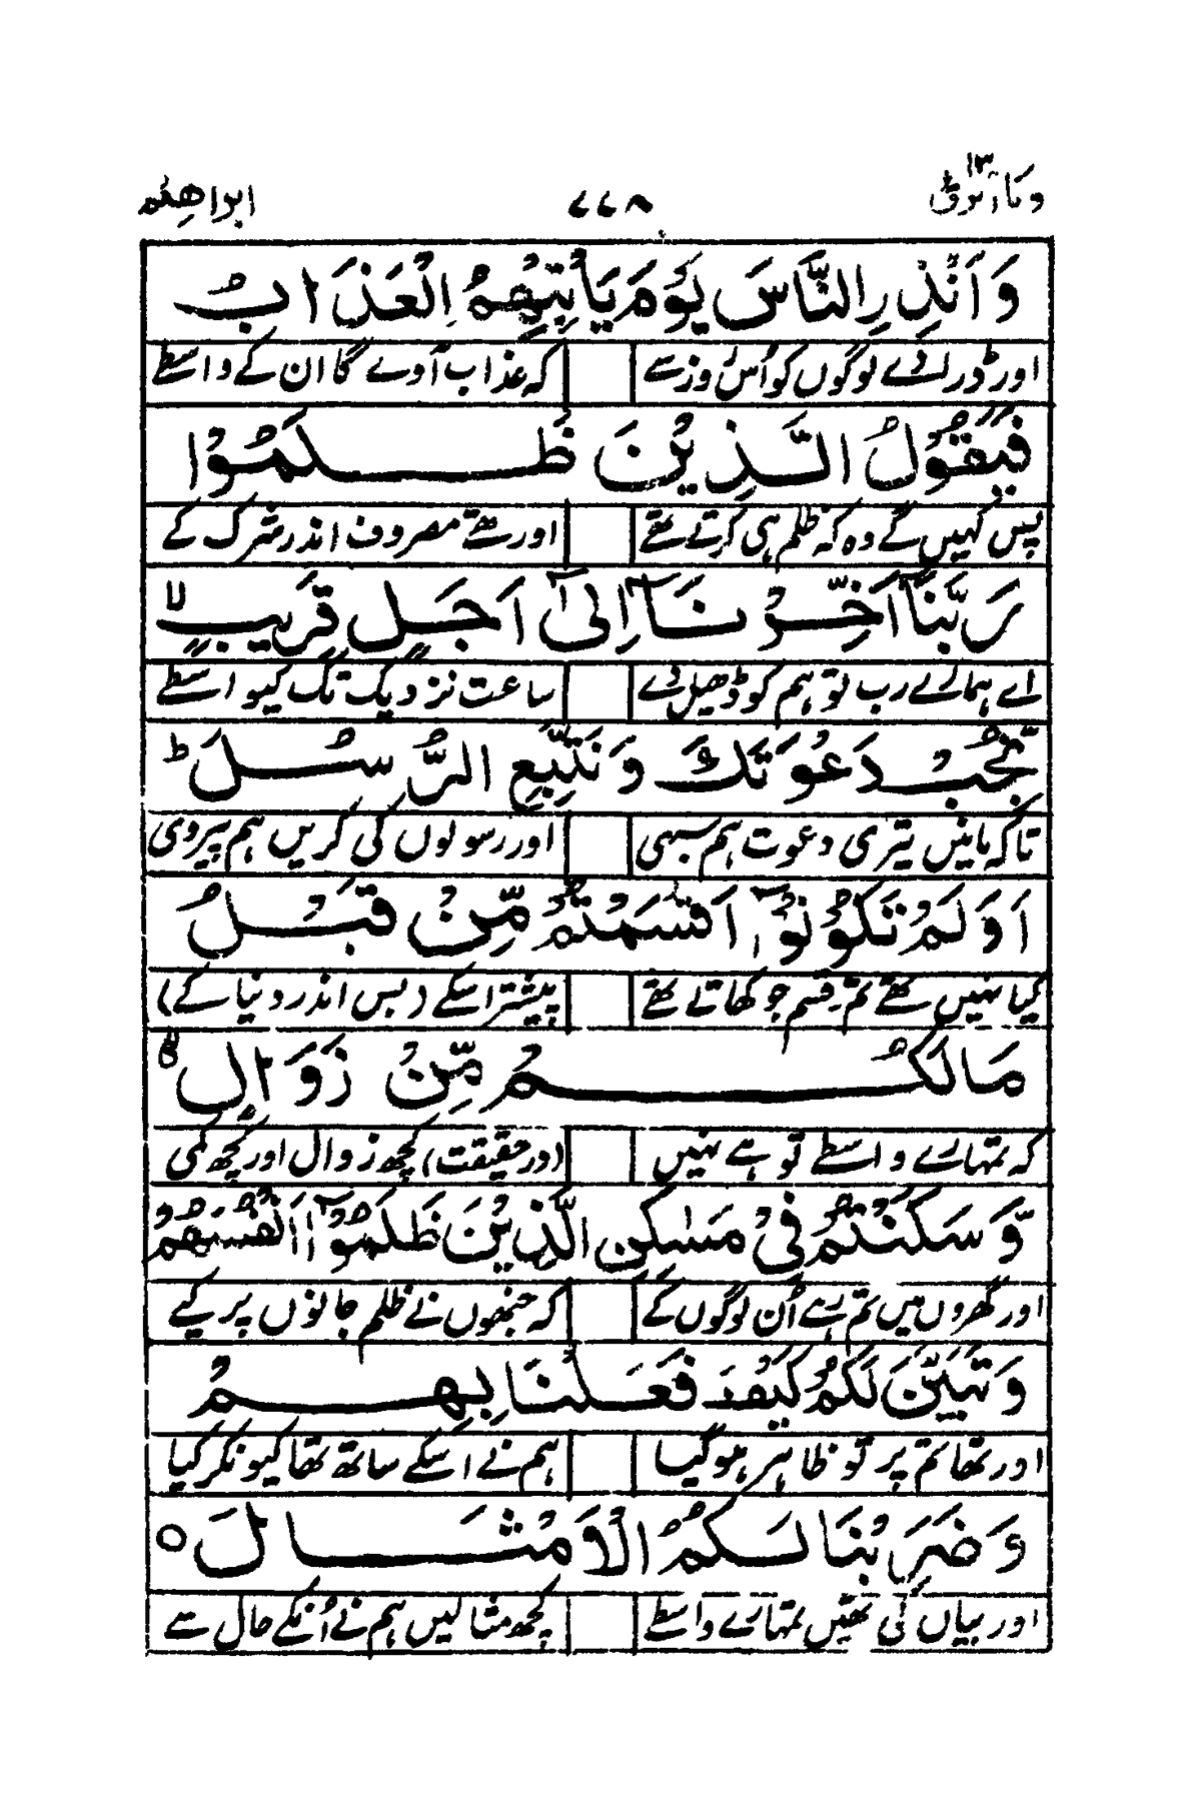 ومآ ابرئ ١٣
٧٧٨
ابراهيم
وَاَنْذِرِ النَّاسَ يَوْمَ يَاْتِيْهِمُ الْعَذَابُ
اور ڈرا دے لوگوں کو اُس روز سے کہ عذاب آوے گا ان کے واسطے
فَيَقُوْلُ الَّذِيْنَ ظَلَمُوْا
پس کہیں گے وہ کہ ظلم ہی کرتے تھے اور تھے مصروف اندر شرک کے
رَبَّنَآ اَخِّرْنَآ اِلٰٓى اَجَلٍ قَرِيْبٍ ۙ
اے ہمارے رب تو ہم کو ڈھیل دے ساعت نزدیک تک کیواسطے
نُّجِبْ دَعْوَتَكَ وَنَتَّبِعِ الرُّسُلَ ؕ
تاکہ مانیں تیری دعوت ہم سبھی اور رسولوں کی کریں ہم پیروی
اَوَلَمْ تَكُوْنُوْٓا اَقْسَمْتُمْ مِّنْ قَبْلُ
کیا نہیں تھے تم قسم جو کھاتے تھے پیشتر اسکے (بس اندر دنیا کے)
مَا لَكُمْ مِّنْ زَوَالٍ ۙ
کہ تمہارے واسطے تو ہے نہیں (در حقیقت) کچھ زوال اور کچھ کمی
وَّسَكَنْتُمْ فِيْ مَسٰكِنِ الَّذِيْنَ ظَلَمُوْٓا اَنْفُسَهُمْ
اور گھروں میں تم رہے اُن لوگوں کے کہ جنھوں نے ظلم جانوں پر کیے
وَتَبَيَّنَ لَكُمْ كَيْفَ فَعَلْنَا بِهِمْ
اور تھا تم پر تو ظاہر ہو گیا ہم نے اسکے ساتھ تھا کیونکر کیا
وَضَرَبْنَا لَكُمُ الْاَمْثَالَ ○
اور بیاں کی تھیں تمہارے واسطے کچھ مثالیں ہم نے اُنکے حال سے